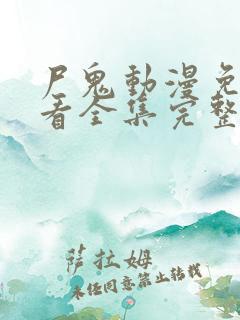 尸鬼動漫免
看全集完整
萨拉姆
未经同意禁止转载